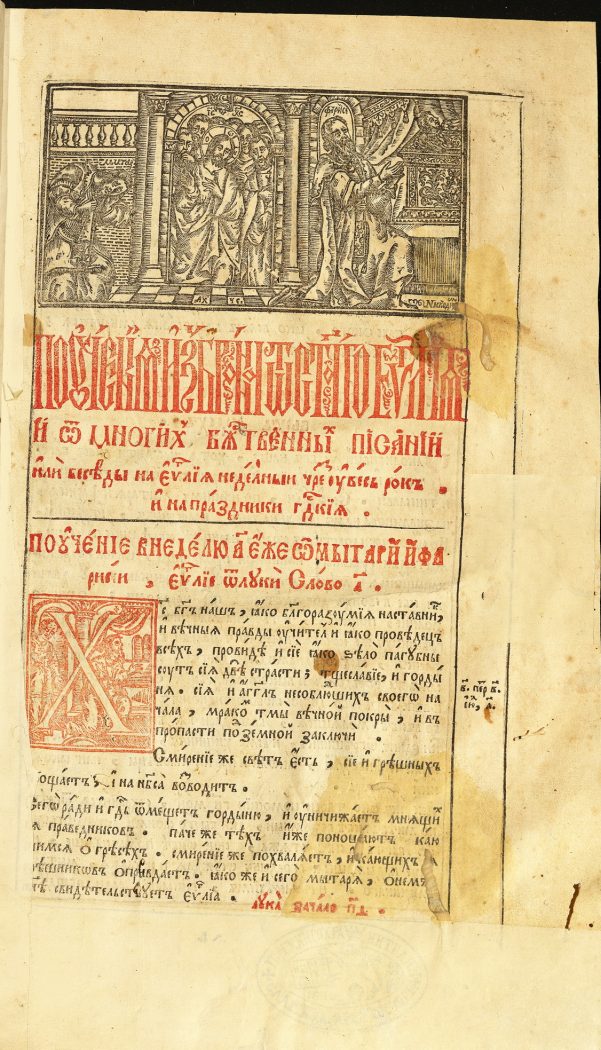 ІС ХС
МИТАР
ФАРИСЕ
ПОУЧЕНЇѦ ИЗБРАН҇ни Ѿ СТ҃ГО ЕѴ҃ЛЇѦ
И҆ ѿ многи́хъ бж҃твенны́ пїса́нїй
и҆лѝ бесѣды на є҆ѵ҃лїѧ недѣ́лныѝ чре́з̾ ѹ҆ве́сь ро́къ .
и҆ на пра́здники гд҃скїѧ .
поѹче́нїе в недѣ́лю а҃ є҆́же ѡ҆ мытарѝ и҆ фа
рисе́и , є҆ѵ҃лїе ѿ лукѝ Сло́во а҃ .
Х
с҃ бг҃ъ на́шъ , ꙗ҆́ко бл҃горазѹ́мїѧ наста́вни́ ,
и҆ вѣ́чныѧ пра́вды ѹ҆чи́тел и҆ ꙗ҆́ко провѣ́децъ
всѣ́хъ , прови́дѣ и҆ сїѐ ꙗ҆́ко ѕѣлѡ̀ па́губны
сѹ́тъ сїѧ̀ двѣ̀ стра́сти ; тщесла́вїе , и҆ горды́
нѧ . сїѧ̀ и҆ а҆́гг҃ла несоблю́шихъ своегѡ̀ на
ча́ла , мра́ко тмы̀ вѣ́чной покры̀ , и҆ въ
про́пасти под̾зе́мной заключѝ .
Смире́нїе же свѣ́тъ є҆́сть , сїе и҆ грѣ́шныхъ
ощаетъ , и҆ на нб҃са̀ во́зводитъ .
сегѡ̀ ра́ди и҆ гд҃ь ѿме́щетъ гордыню , и҆ ѹ҆ничижа́етъ мнѧ́щи
ѧ пра́ведниковъ . па́че же тѣ́хъ и҆̀же поноша́ютъ ка́ю
щимсѧ ѡ҆ грѣсѣ́хъ . смире́нїе же похвалѧ́етъ , и҆ ка́ющихъ ѧ
грѣ́шниковъ ѡ҆правда́етъ . ꙗ҆́ко же и҆ сего̀ мытарѧ̀ , ѡ҆ нем
свидѣ́тельствѹетъ є҆ѵ҃лїа .
лука̀ зача́ло п҃ѳ .